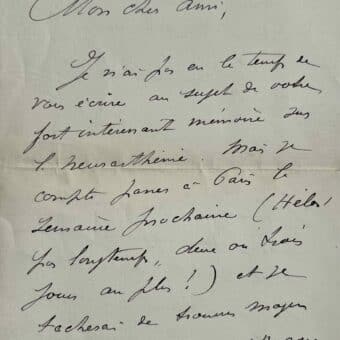 Mon cher ami,
Je n'ai pas eu le temps de
vous écrire au sujet de votre
fort intéressant mémoire sur
la neurasthénie. Mais je
compte passer à Paris la
semaine prochaine (Hélas!
pas longtemps, deux ou trois
jours au plus!) et je
tacherai de trouver moyen